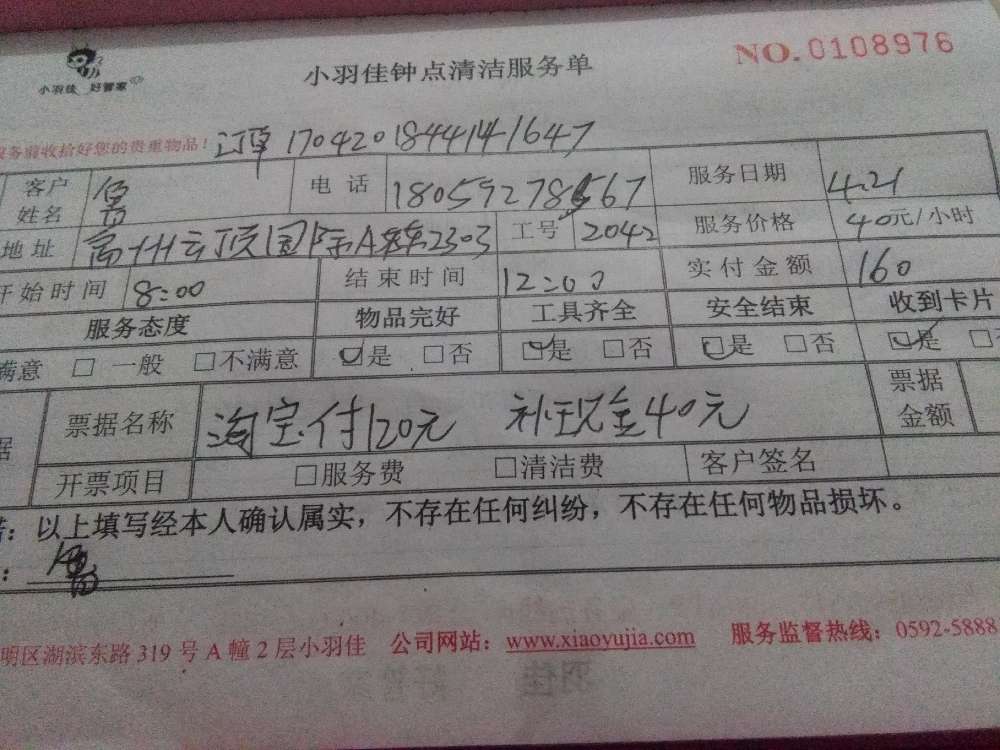 小羽佳 好管家
小羽佳钟点清洁服务单
NO.0108976
服务前收拾好您的贵重物品! 订单 170420184414 1647
客户姓名 电话 服务日期 4.21
地址 国际A2303 工号 2042 服务价格 40元/小时
开始时间 8:00 结束时间 12:00 实付金额 160
服务态度 物品完好 工具齐全 安全结束 收到卡片
满意 □ 一般 □不满意 ☑是 □否 ☑是 □否 ☑是 □否 ☑是
票据名称 淘宝付120元 补现金40元 票据金额
开票项目 □服务费 □清洁费 客户签名
:以上填写经本人确认属实,不存在任何纠纷,不存在任何物品损坏。
明区湖滨东路319号A幢2层小羽佳 公司网站:www.xiaoyujia.com 服务监督热线:0592-5888